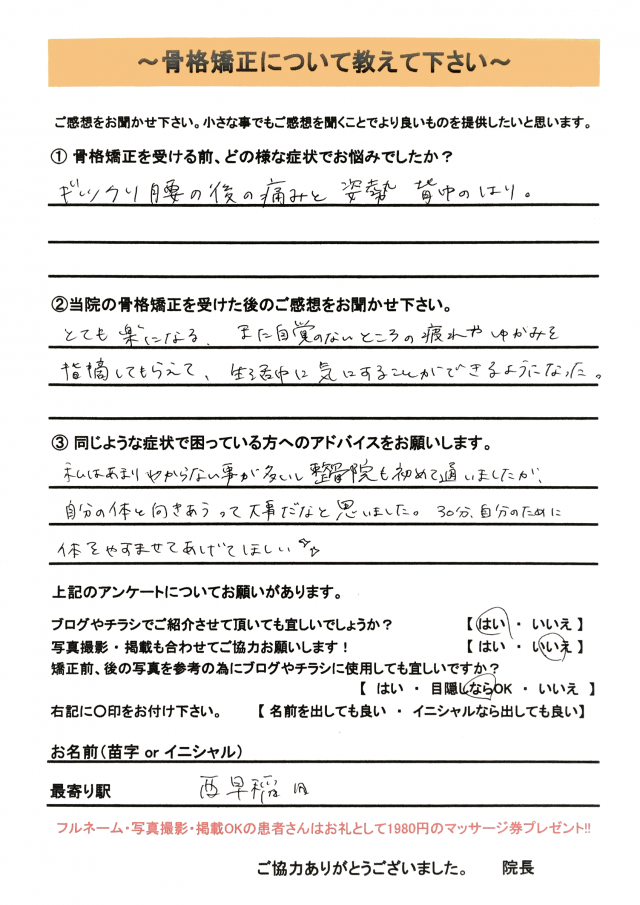 ～骨格矯正について教えて下さい～
ご感想をお聞かせ下さい。小さな事でもご感想を聞くことでより良いものを提供したいと思います。
① 骨格矯正を受ける前、どの様な症状でお悩みでしたか？
ギックリ腰の後の痛みと 姿勢 背中のはり。
②当院の骨格矯正を受けた後のご感想をお聞かせ下さい。
とても楽になる。また自覚のないところの疲れやゆがみを
指摘してもらえて、生活中に気にすることができるようになった。
③ 同じような症状で困っている方へのアドバイスをお願いします。
私はあまりわからない事が多いし整骨院も初めて通いましたが、
自分の体と向きあうって大事だなと思いました。30分、自分のために
体をやすませてあげてほしい☆
上記のアンケートについてお願いがあります。
ブログやチラシでご紹介させて頂いても宜しいでしょうか？ 【 はい ・ いいえ 】
写真撮影・掲載も合わせてご協力お願いします！ 【 はい ・ いいえ 】
矯正前、後の写真を参考の為にブログやチラシに使用しても宜しいですか？
【 はい ・ 目隠しならOK ・ いいえ 】
右記に〇印をお付け下さい。 【 名前を出しても良い ・ イニシャルなら出しても良い】
お名前（苗字 or イニシャル）
最寄り駅 西早稲田
フルネーム・写真撮影・掲載OKの患者さんはお礼として1980円のマッサージ券プレゼント!!
ご協力ありがとうございました。 院長